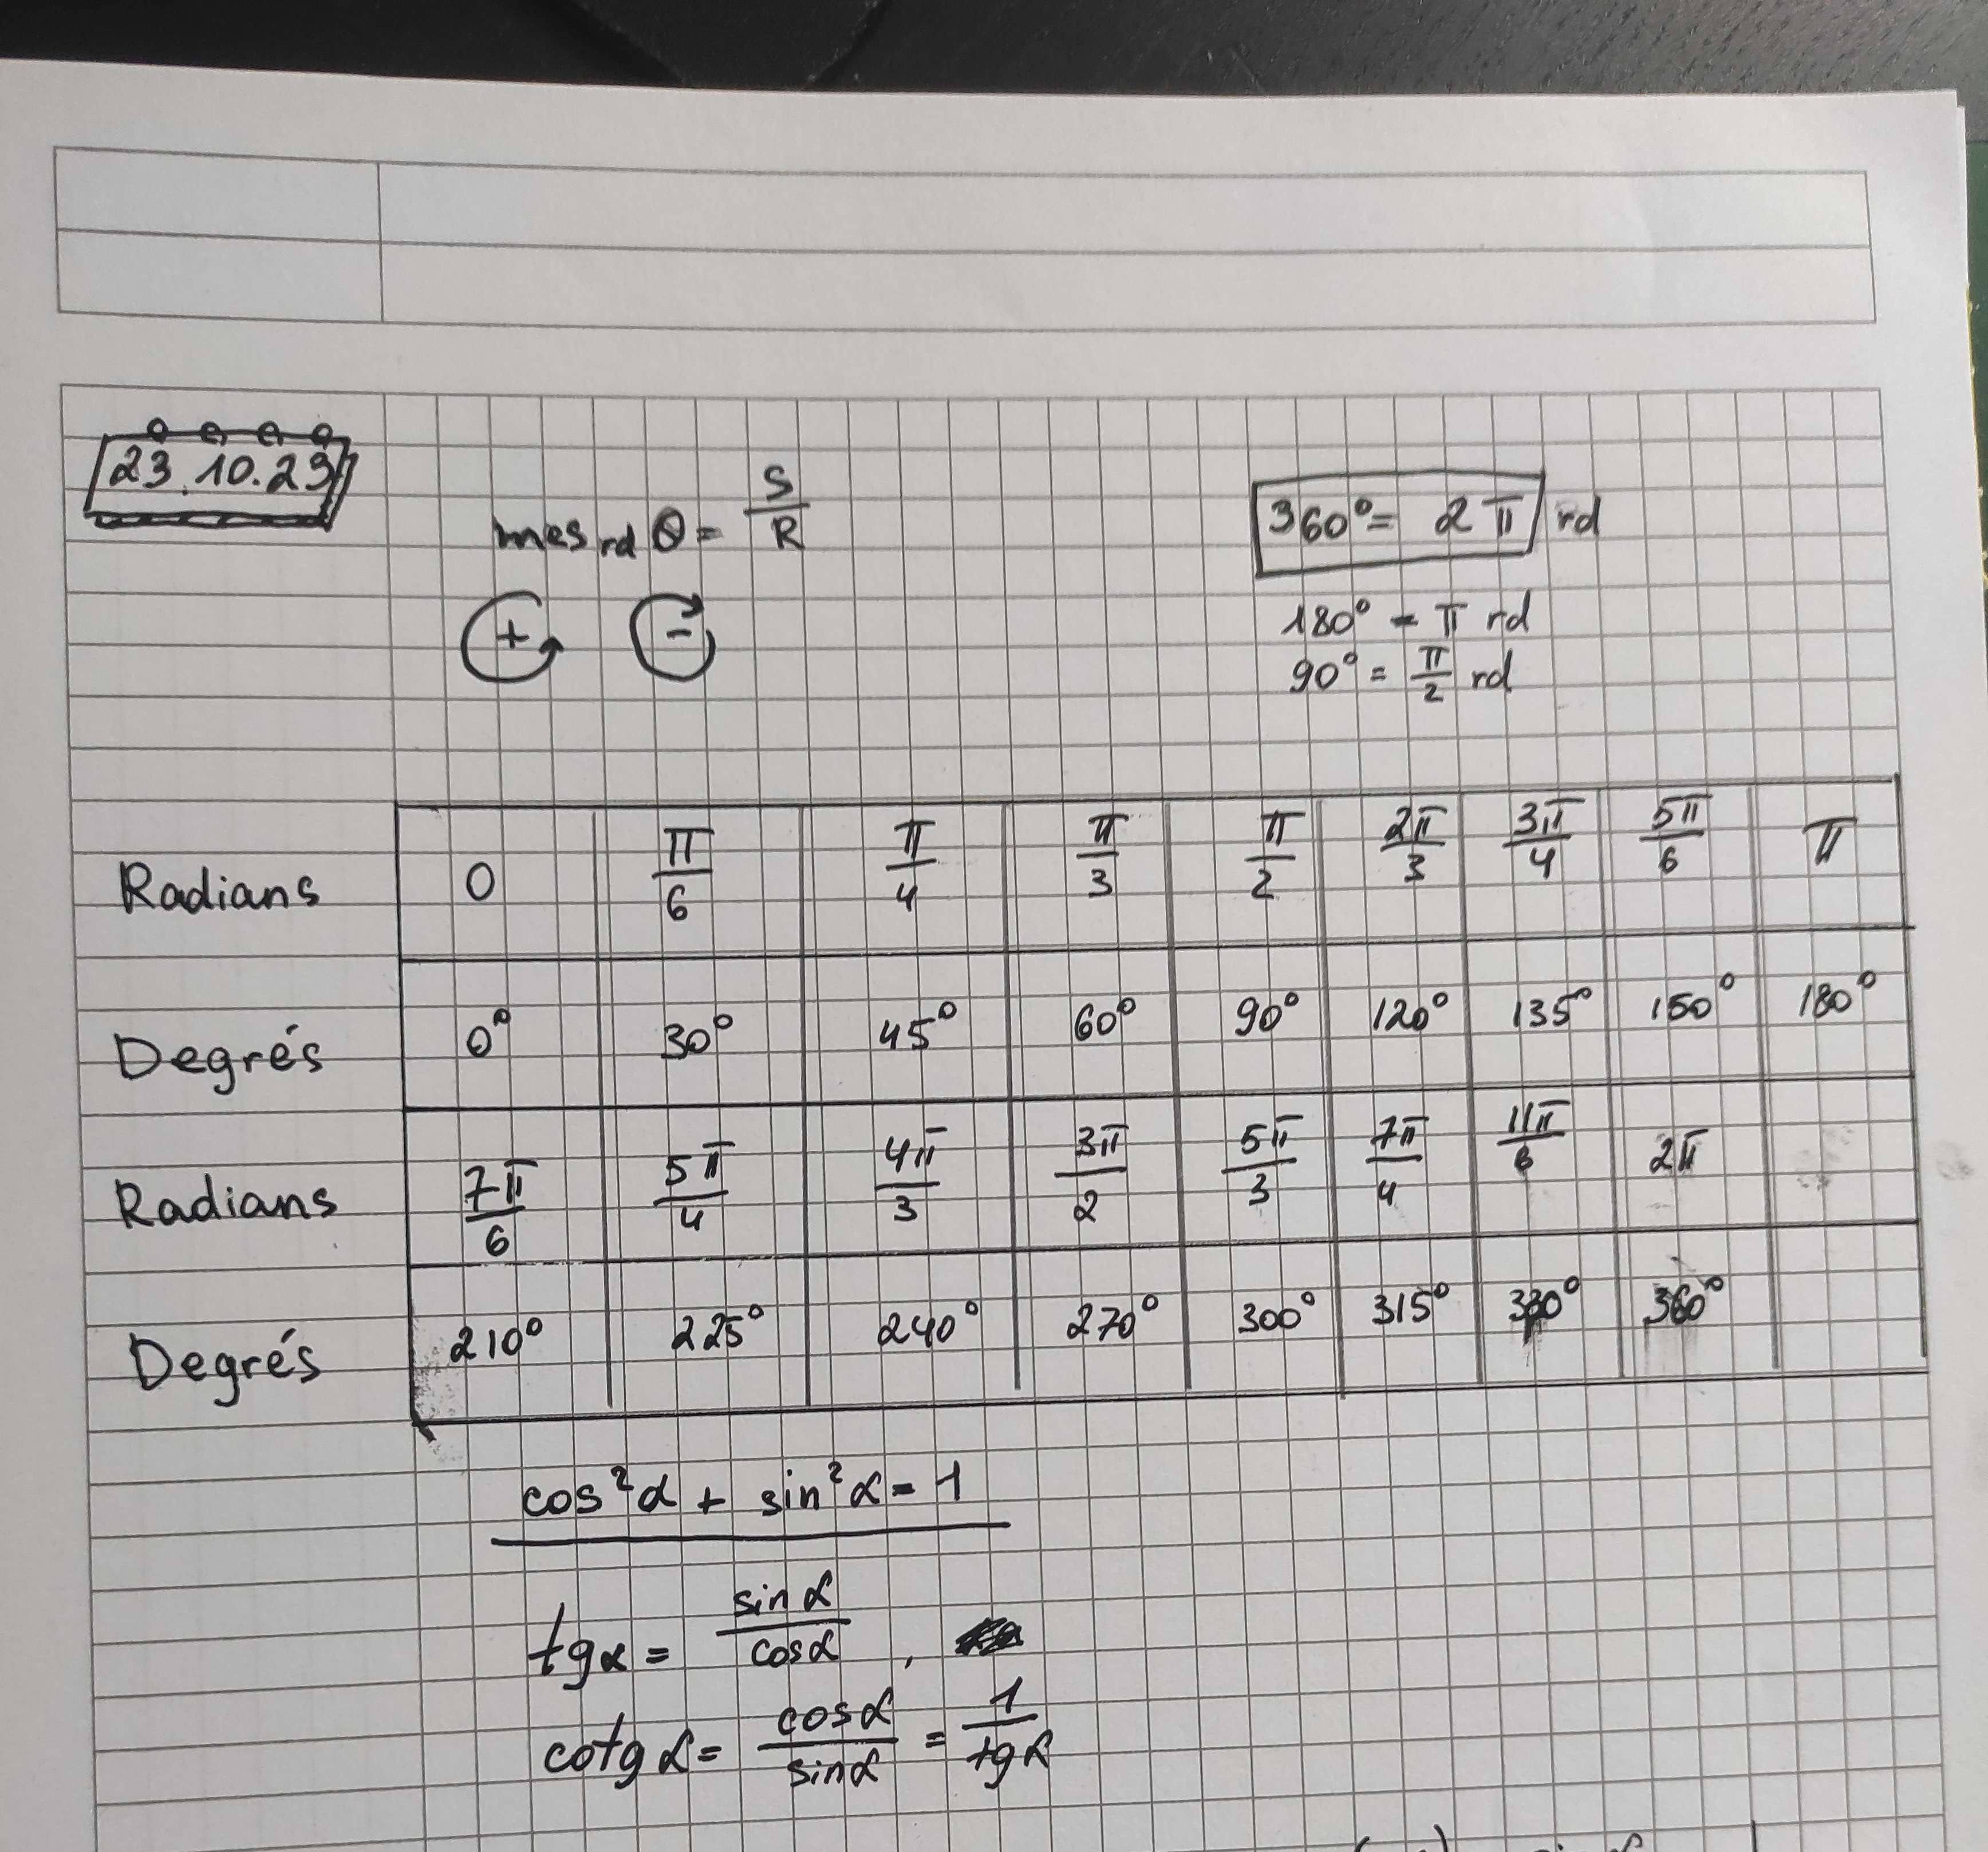 23.10.23
mes rd θ = S/R
360° = 2π rd
+ -
180° = π rd
90° = π/2 rd
Radians 0 π/6 π/4 π/3 π/2 2π/3 3π/4 5π/6 π
Degrés 0° 30° 45° 60° 90° 120° 135° 150° 180°
Radians 7π/6 5π/4 4π/3 3π/2 5π/3 7π/4 11π/6 2π
Degrés 210° 225° 240° 270° 300° 315° 330° 360°
cos²α + sin²α = 1
tgα = sinα/cosα ,
cotgα = cosα/sinα = 1/tgα